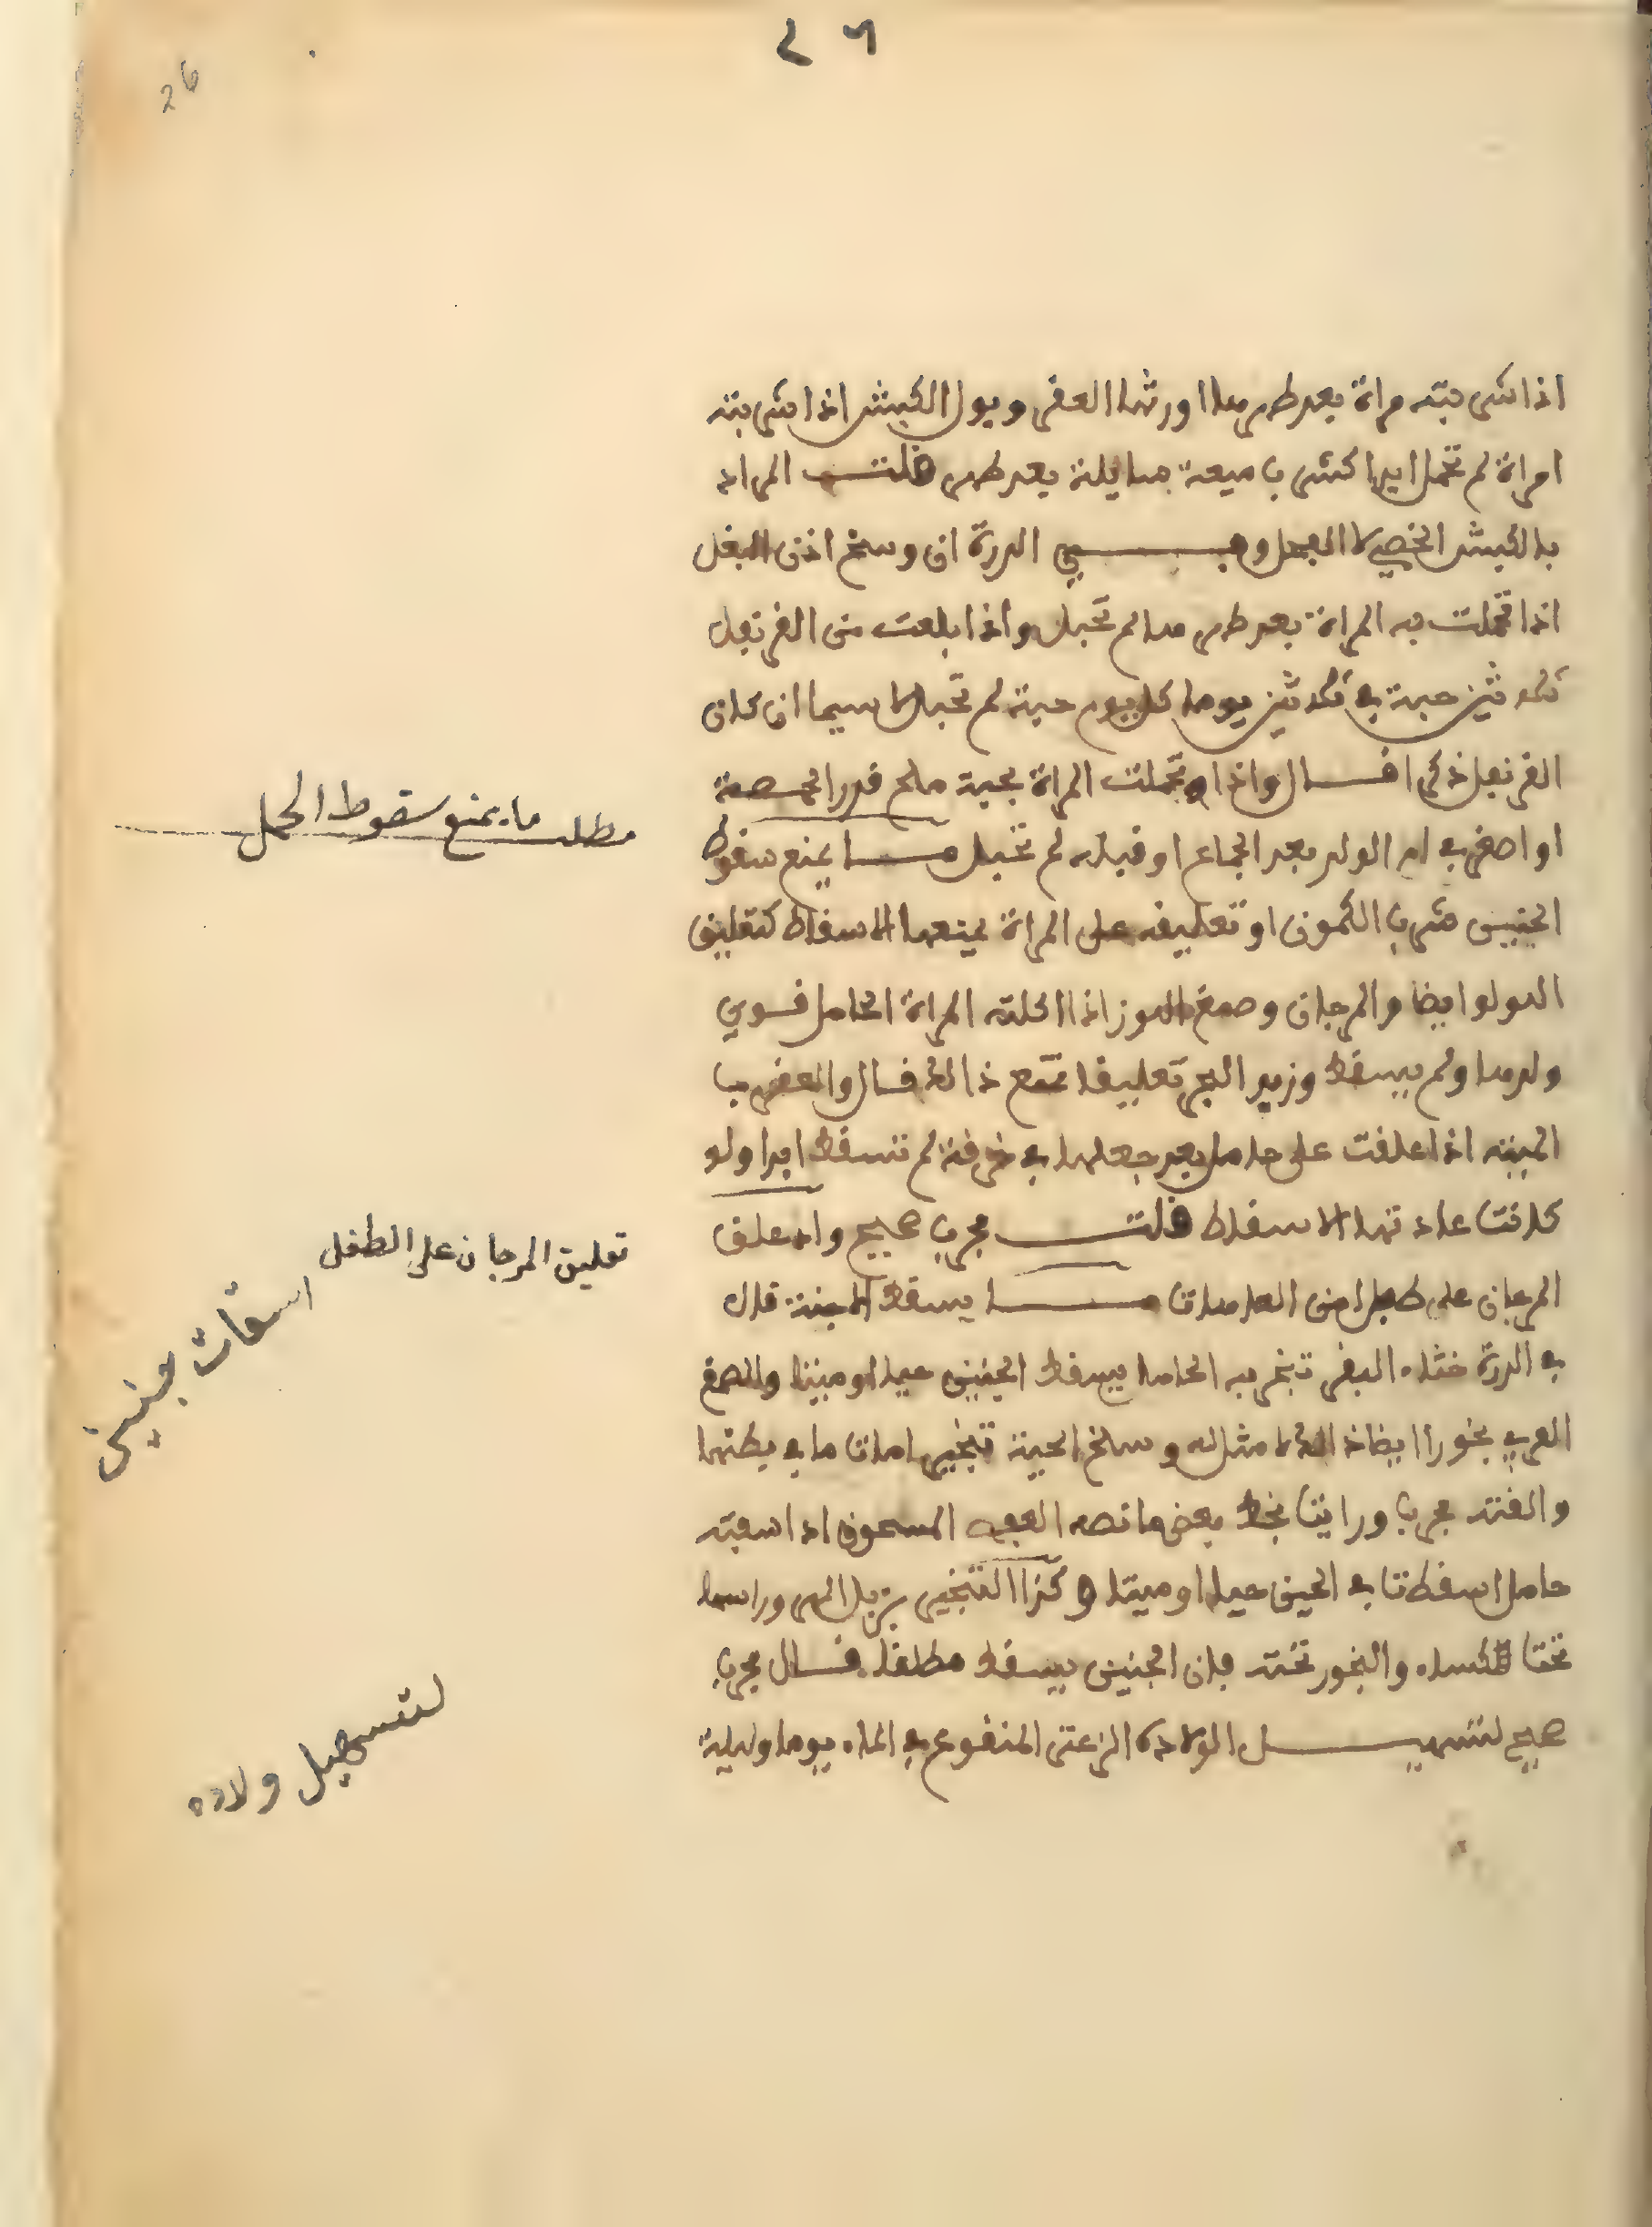 ٢٦
26
اذا شربته مراة بعد طهرها اورثها العقر وبول الكبش اذا شربته
امراة لم تحمل ابدا كشرب ميعة سايلة بعد طهر قلت المراد
بالكبش الخصي لا الفحل وفي الدرة ان وسخ اذن البغل
اذا تحملت به المراة بعد طهرها لم تحبل واذا بلعت من القرنفل
ثلاثين حبة في ثلاثين يوما كل يوم حبة لم تحبل لاسيما ان كان
القرنفل ذكرا قال واذا تحملت المراة بحبة ملح قدر الحمصة
او اصغر في ام الولد بعد الجماع او قبله لم تحبل ما يمنع سقوط
الجنين شرب الكمون او تعليقه على المراة يمنعها الاسقاط كتعليق
اللولو ايضا والمرجان وصمغ اللوز اذا اكلته المراة الحامل قوي
ولدها ولم يسقط وزبد البحر تعليقا يمنع ذالك قال والعقرب
الميتة اذا علقت على حامل بعد جعلها في خرقة لم تسقط ابدا ولو
كانت عادتها الاسقاط قلت مجرب صحيح وان علق
المرجان على طفل امن العاهات ما يسقط الاجنة قال
في الدرة خثاء البقر تبخر به الحامل يسقط الجنين حيا او ميتا والصمغ
العربي بخورا ايضا ذالك لا مثاله وسلخ الحية تبخيرا مات ما في بطنها
والقته مجرب ورايت بخط بعض ما نصه المسحوق اذا سقته
حامل اسقطت في الحين حيا او ميتا وكذا التبخير بزبل الهر وراسها
تحت الكساء والبخور تحته فان الجنين يسقط مطلقا قال مجرب
صحيح لتسهيل الولادة الزعتر المنقوع في الماء يوما وليلة
مطلب ما يمنع سقوط الحمل
تعليق المرجان على الطفل
اسقات جنين
لتسهيل ولاده